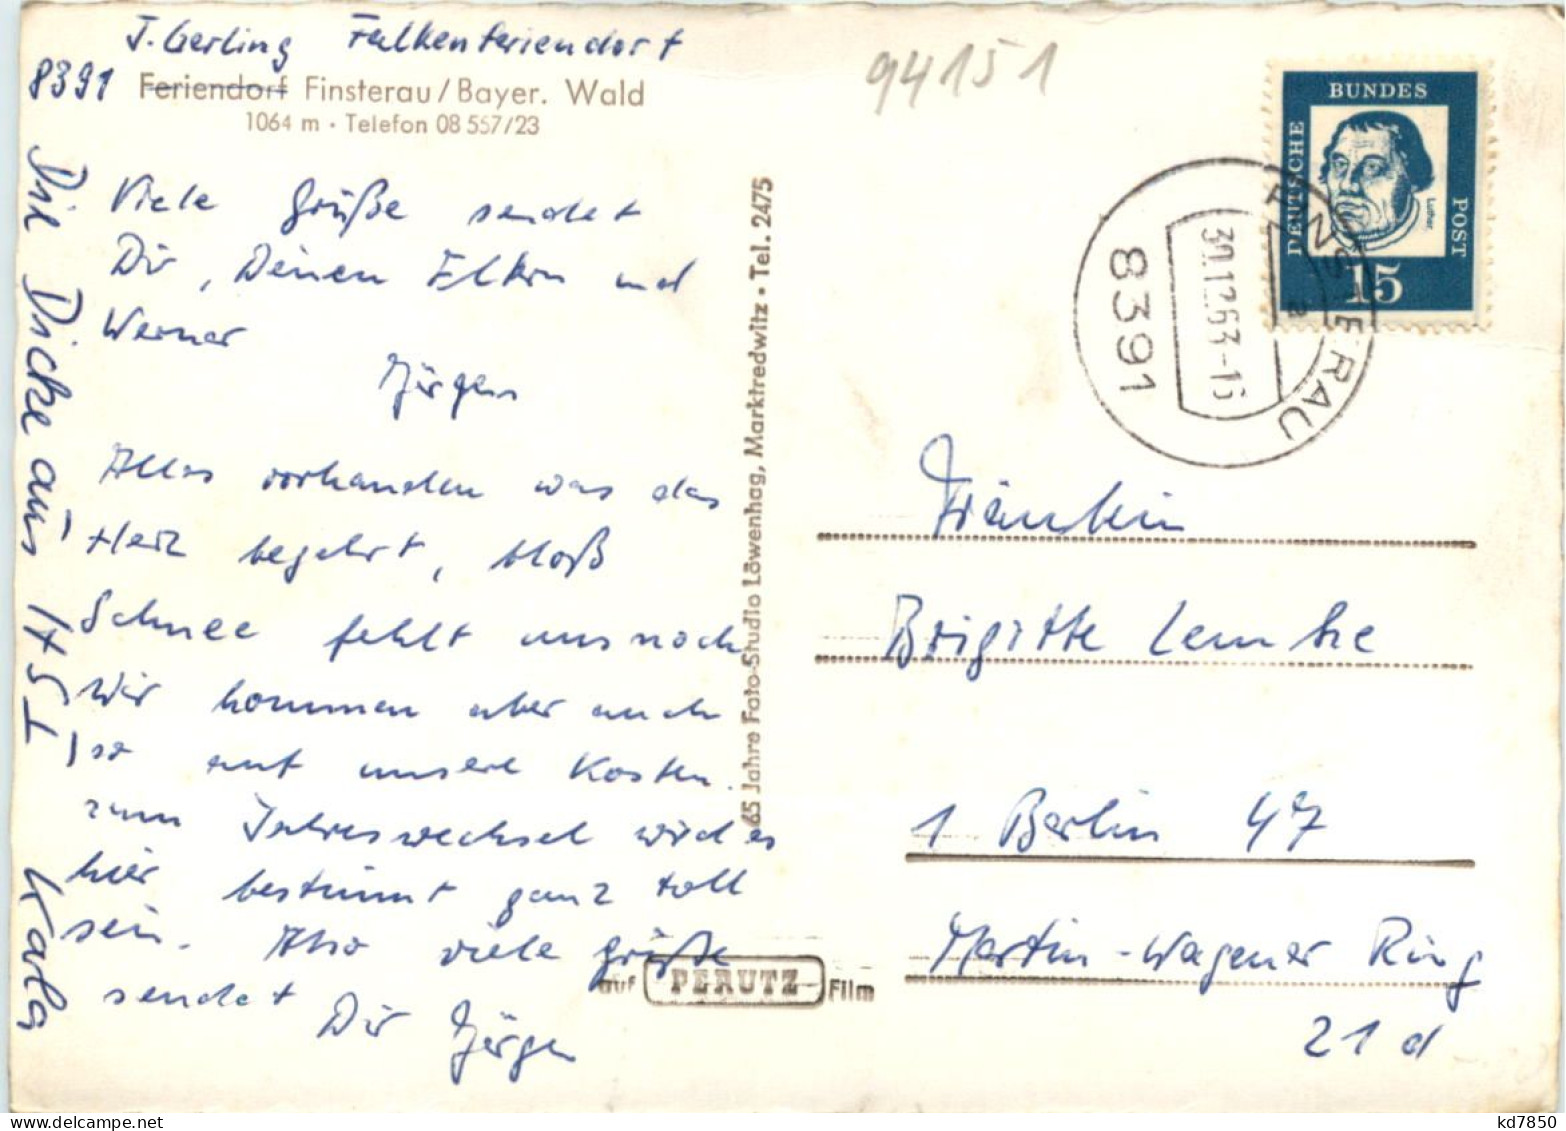 J. Gerling Falkenferiendorf
8391 Feriendorf Finsterau/Bayer. Wald
1064 m · Telefon 08 557/23
Viele Grüße sendet
Dir, Deinen Eltern und
Werner
Jürgen
Alles vorhanden was das
Herz begehrt, bloß
Schnee fehlt uns noch
Wir kommen aber auch
so auf unsere Kosten.
zum Jahreswechsel wird es
hier bestimmt ganz toll
sein. Also viele grüße
sendet Dir Jürgen
Die Dicke aus H5I Karla
65 Jahre Foto-Studio Löwenhag, Marktredwitz · Tel. 2475
auf PERUTZ Film
94151
DEUTSCHE BUNDES POST
Luther
15
FINSTERAU
a
30.12.63-16
8391
Fräulein
Brigitte Lemke
1 Berlin 47
Martin-Wagener Ring
21 d
kd7850